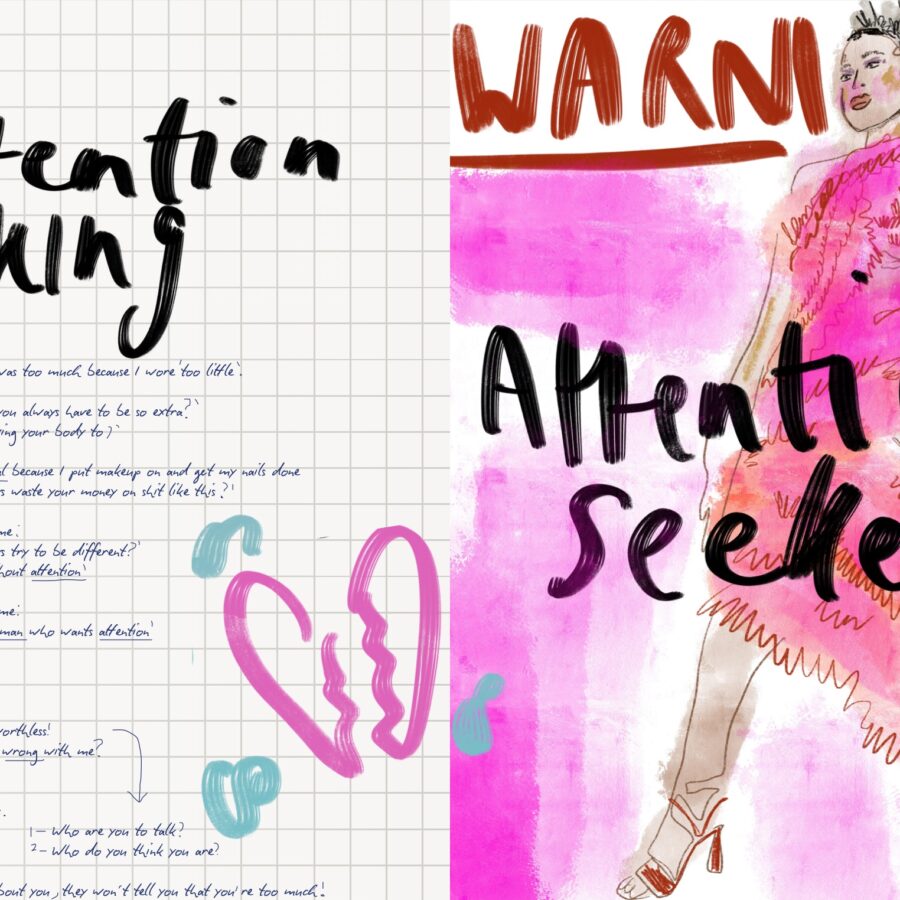 tention
king
was too much because I wore 'too little'.
you always have to be so extra?'
ing your body to)'
l because I put makeup on and get my nails done
s waste your money on shit like this?'
me:
s try to be different?'
hout attention'
me:
man who wants attention'
orthless!
wrong with me?
1- Who are you to talk?
2- Who do you think you are?
bout you, they won't tell you that you're too much!
WARNI
Attenti
Seeke